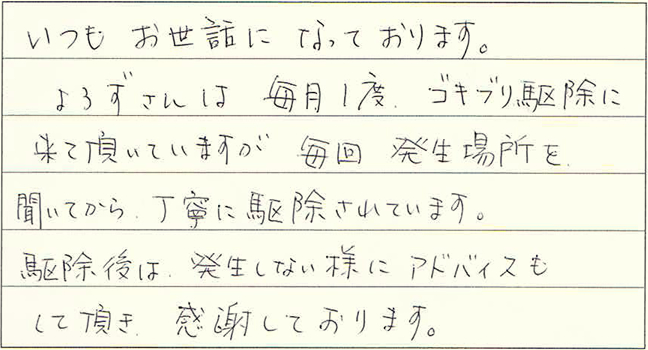 いつも お世話に なっております。
よろずさんは 毎月1度、ゴキブリ駆除に
来て頂いていますが 毎回 発生場所を、
聞いてから、丁寧に駆除されています。
駆除後は、発生しない様に アドバイスも
して頂き、感謝しております。